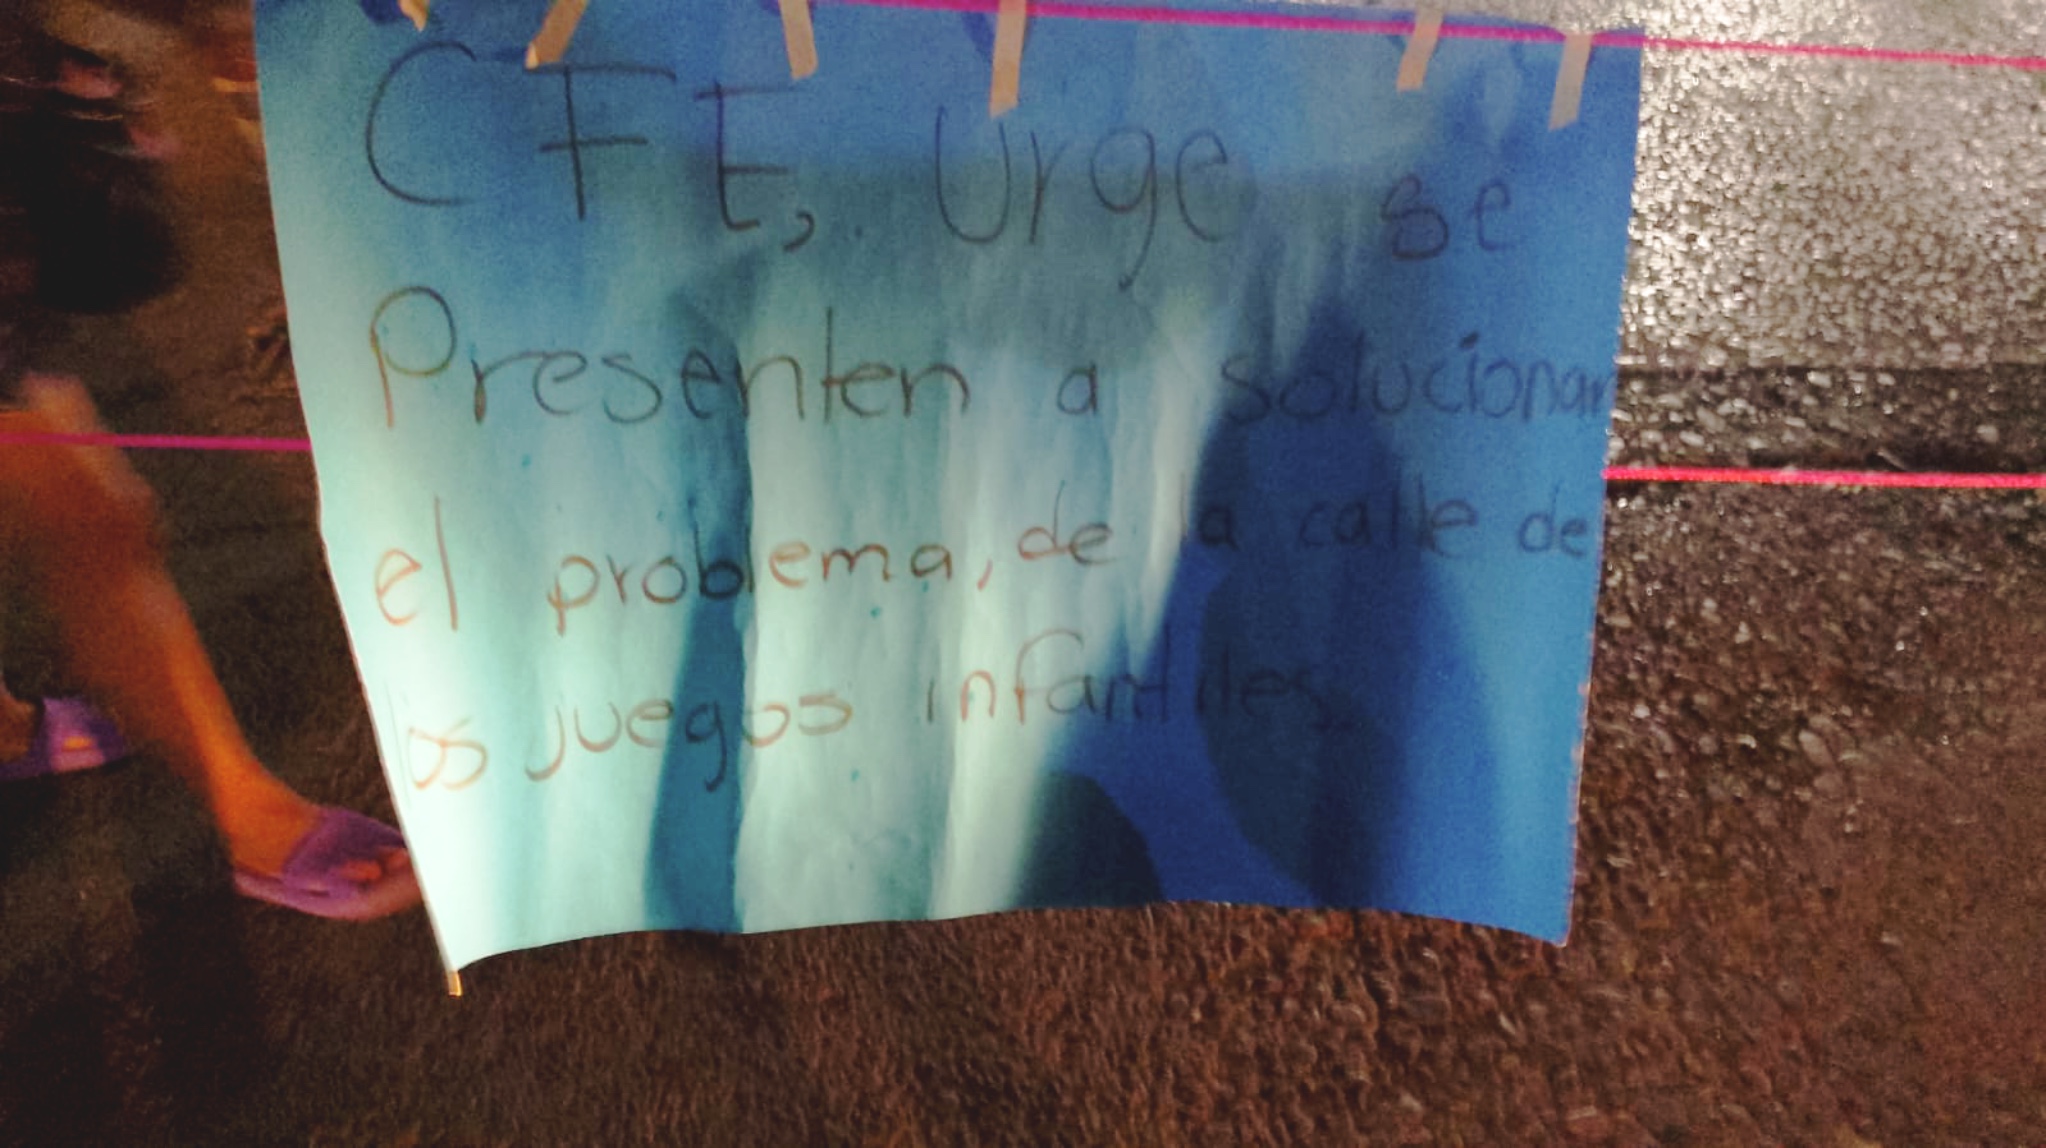 CFE, Urge se
Presenten a solucionar
el problema, de la calle de
los juegos infantiles.